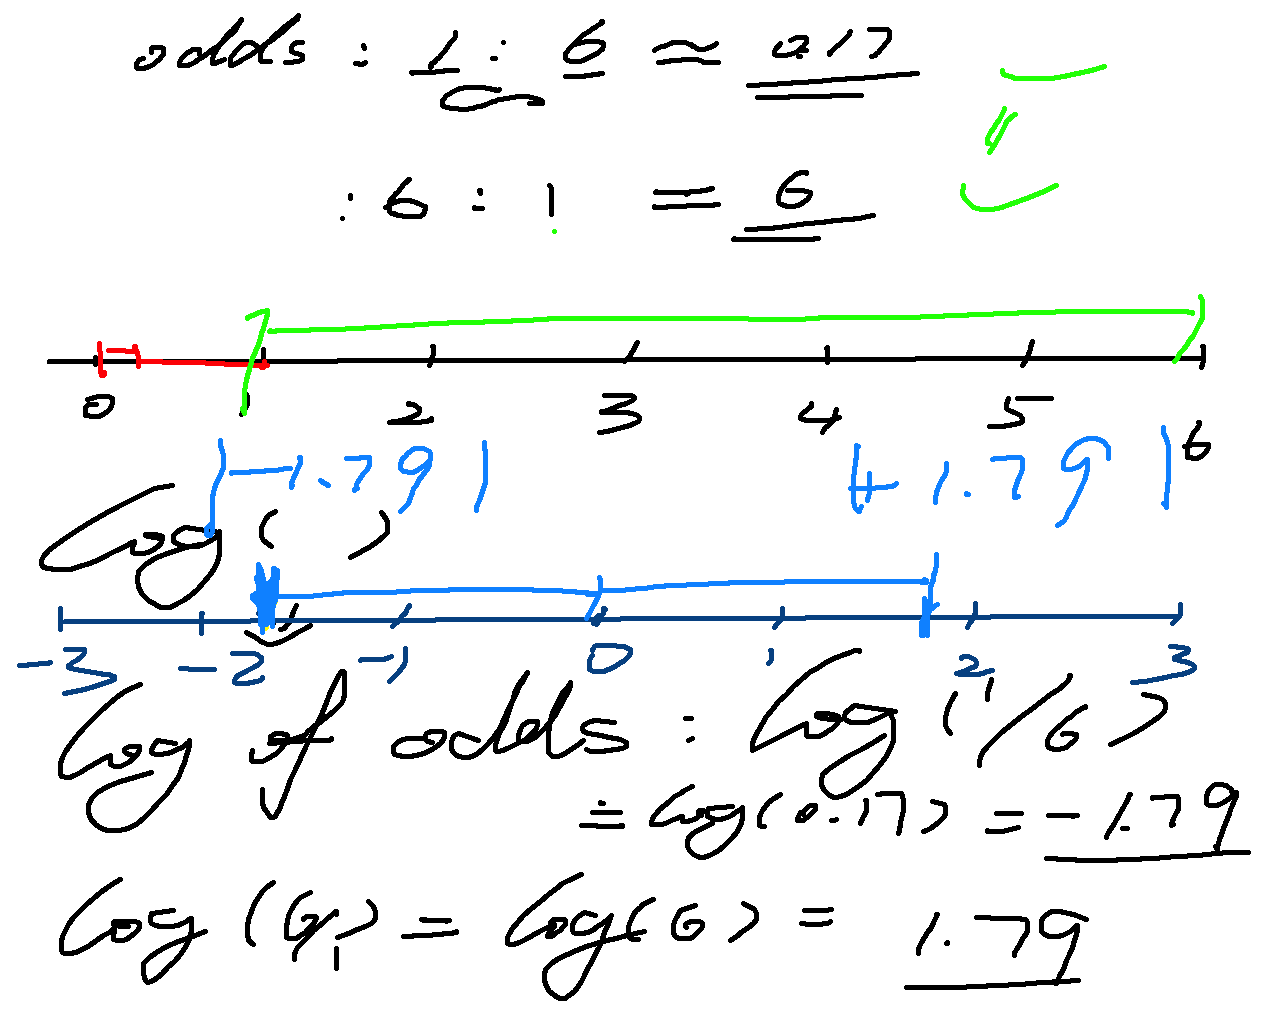 odds : 1 : 6 ≈ 0.17
: 6 : 1 = 6
0 1 2 3 4 5 6
|-1.79| |+1.79|
log ( )
-3 -2 -1 0 1 2 3
log of odds : log (1/6)
= log(0.17) = -1.79
log (6/1) = log(6) = 1.79